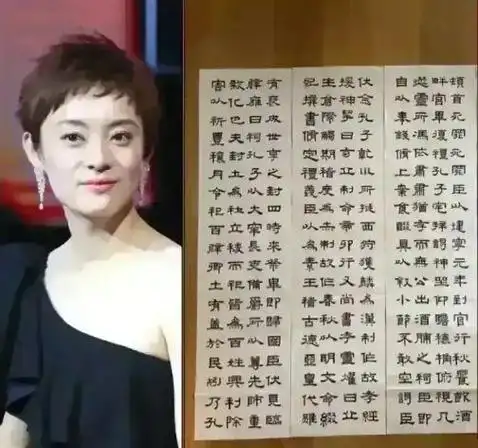 頓首死罪死罪臣以建寧元年到官行秋饗飲酒
畔宮畢復禮孔子宅拜謁神坐仰瞻榱桷俯視几
筵靈所馮依肅肅猶存而無公出酒脯之祠臣即
自以奉錢脩上案食醊具以敘小節不敢空謁臣
伏念孔子乾坤所挺西狩獲麟為漢制作故孝經
援神挈曰玄丘制命帝卯行又尚書考靈燿曰丘
生倉際觸期稽度為赤制故作春秋以明文命綴
紀撰書脩定禮義臣以為素王稽古德亞皇代雖
有褒成世享之封四時來祭畢即歸國臣伏見臨
辟雍日祠孔子以大宰長吏備爵所以尊先師重
教化也夫封土為社立稷而祀皆為百姓興利除
害以祈豐穰月令祀百辟卿士有益於民矧乃孔